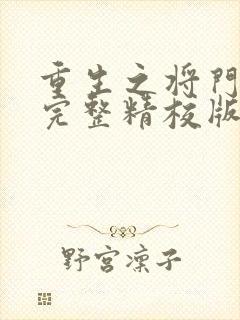 重生之将門
完整精校版
野宮凜子